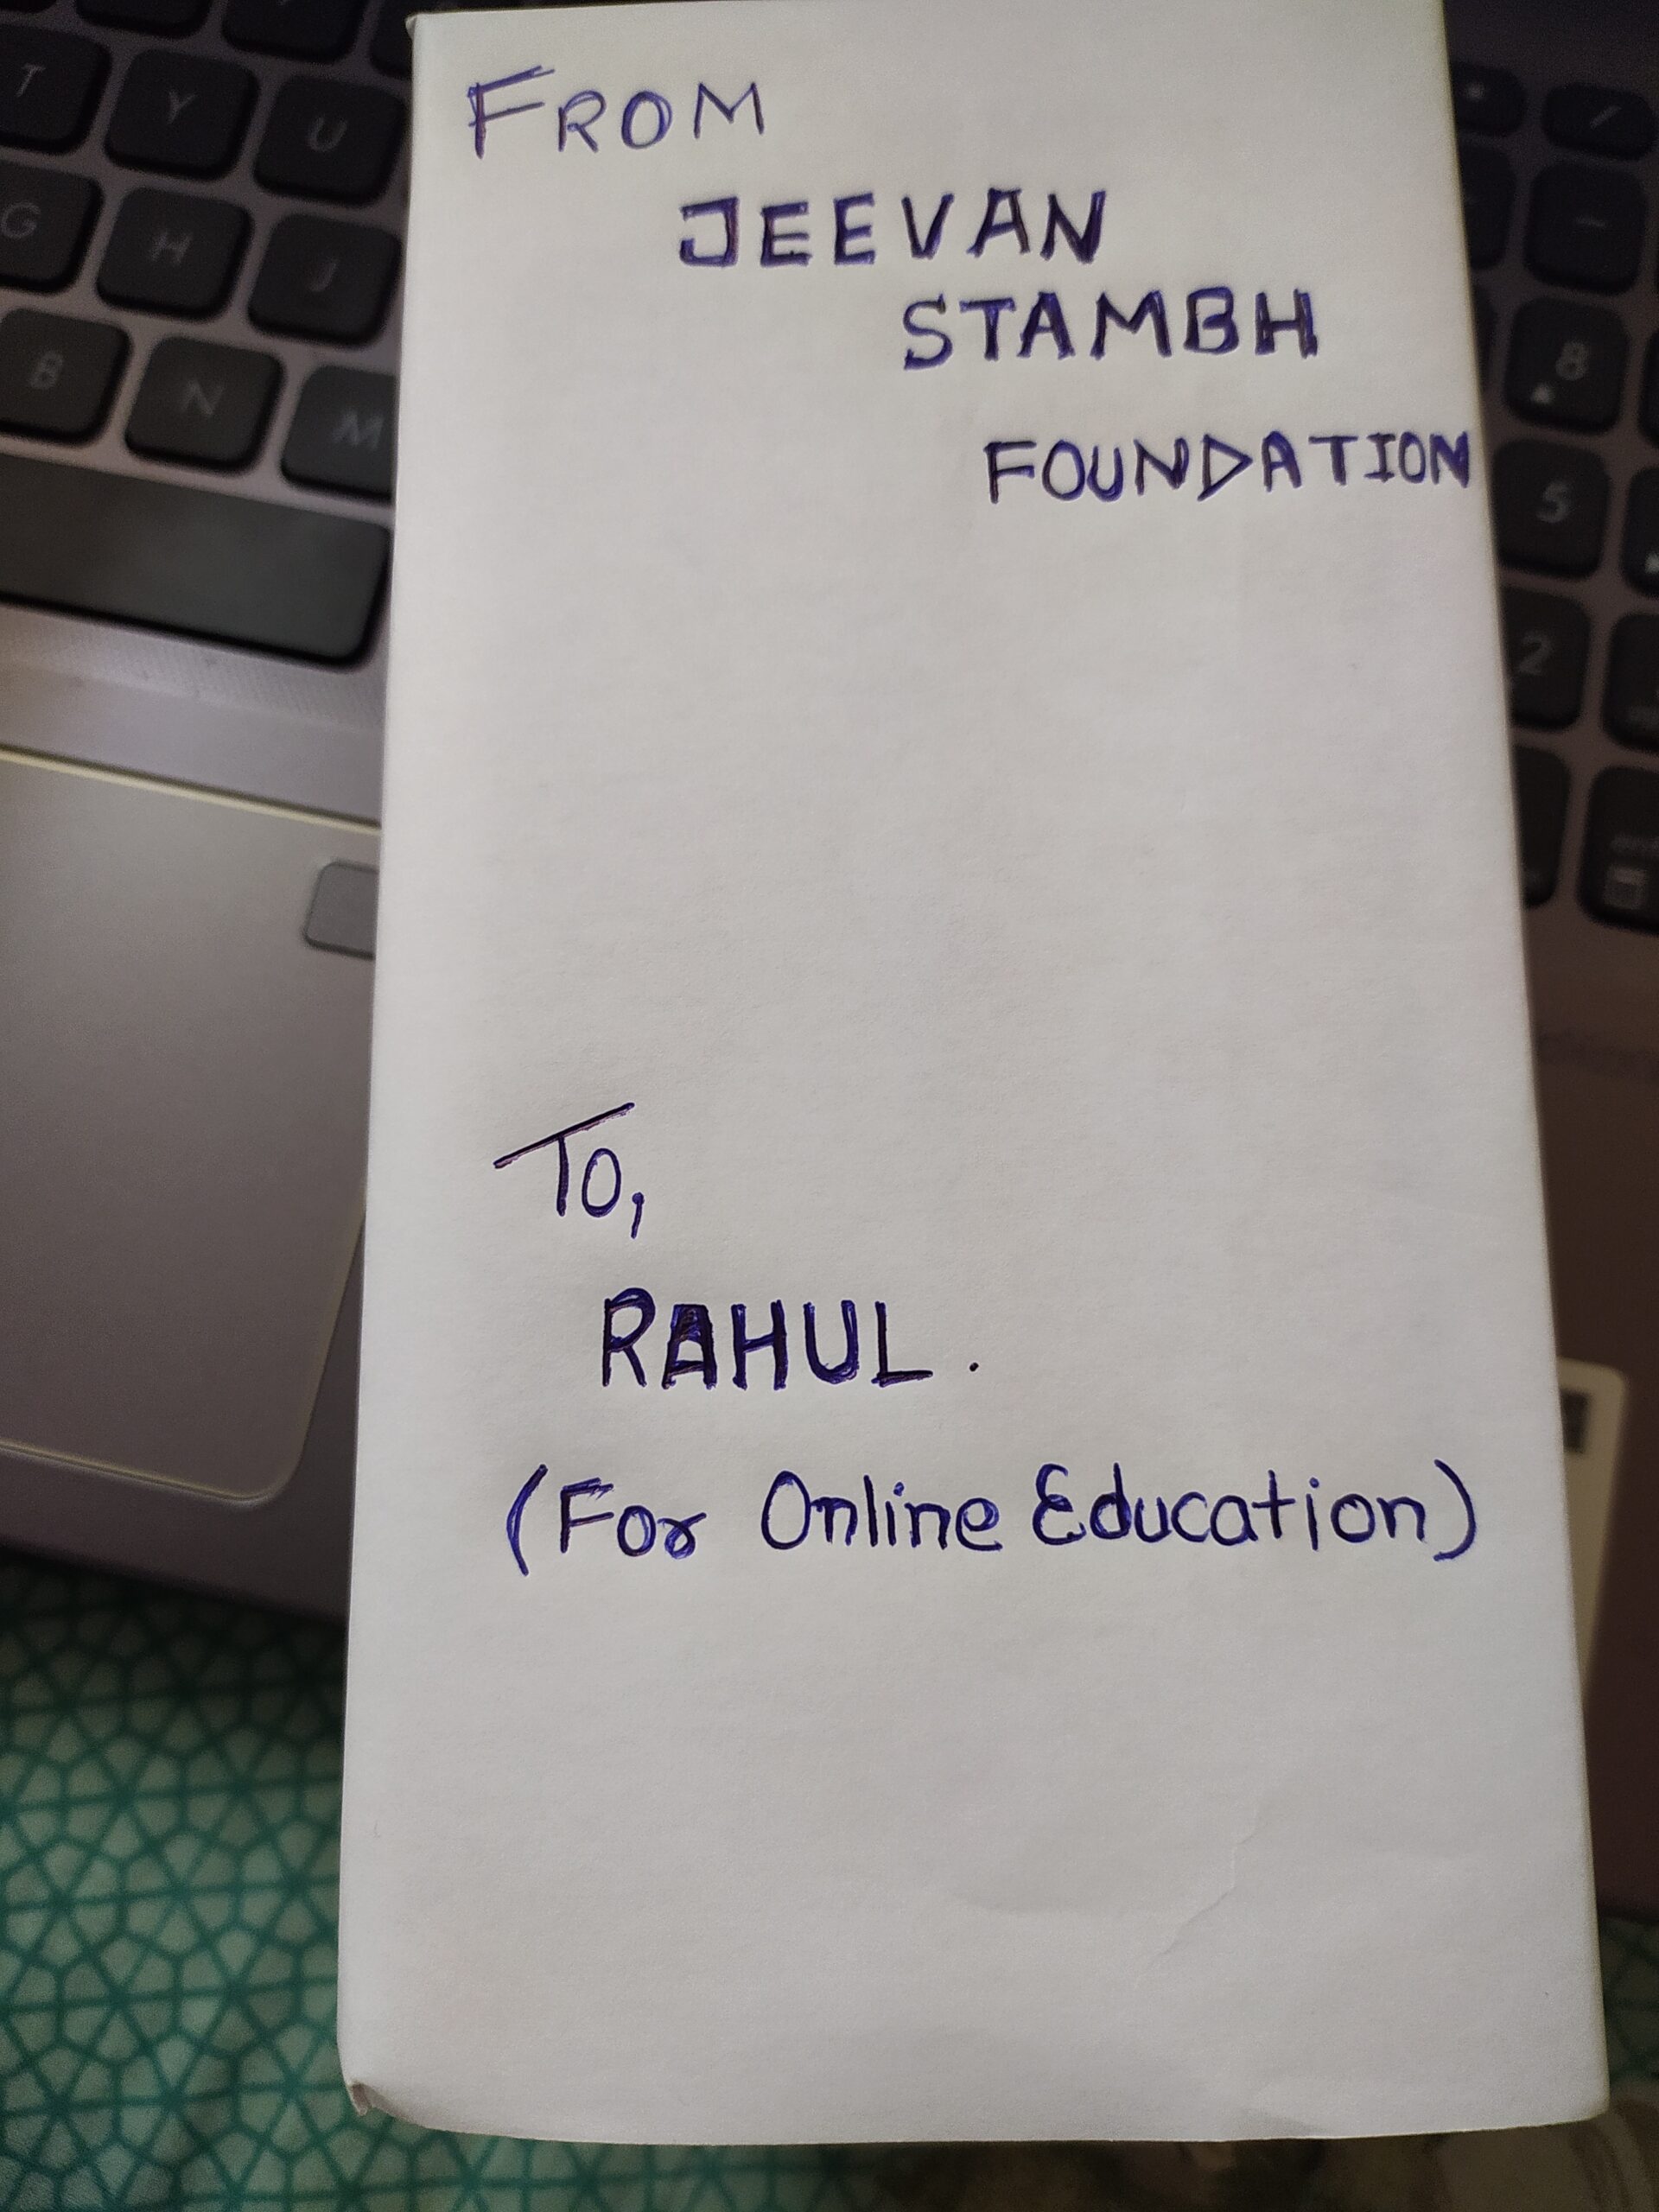 FROM
JEEVAN
STAMBH
FOUNDATION
To,
RAHUL.
(For Online Education)
T Y U
G H J
B N M
8
5
2